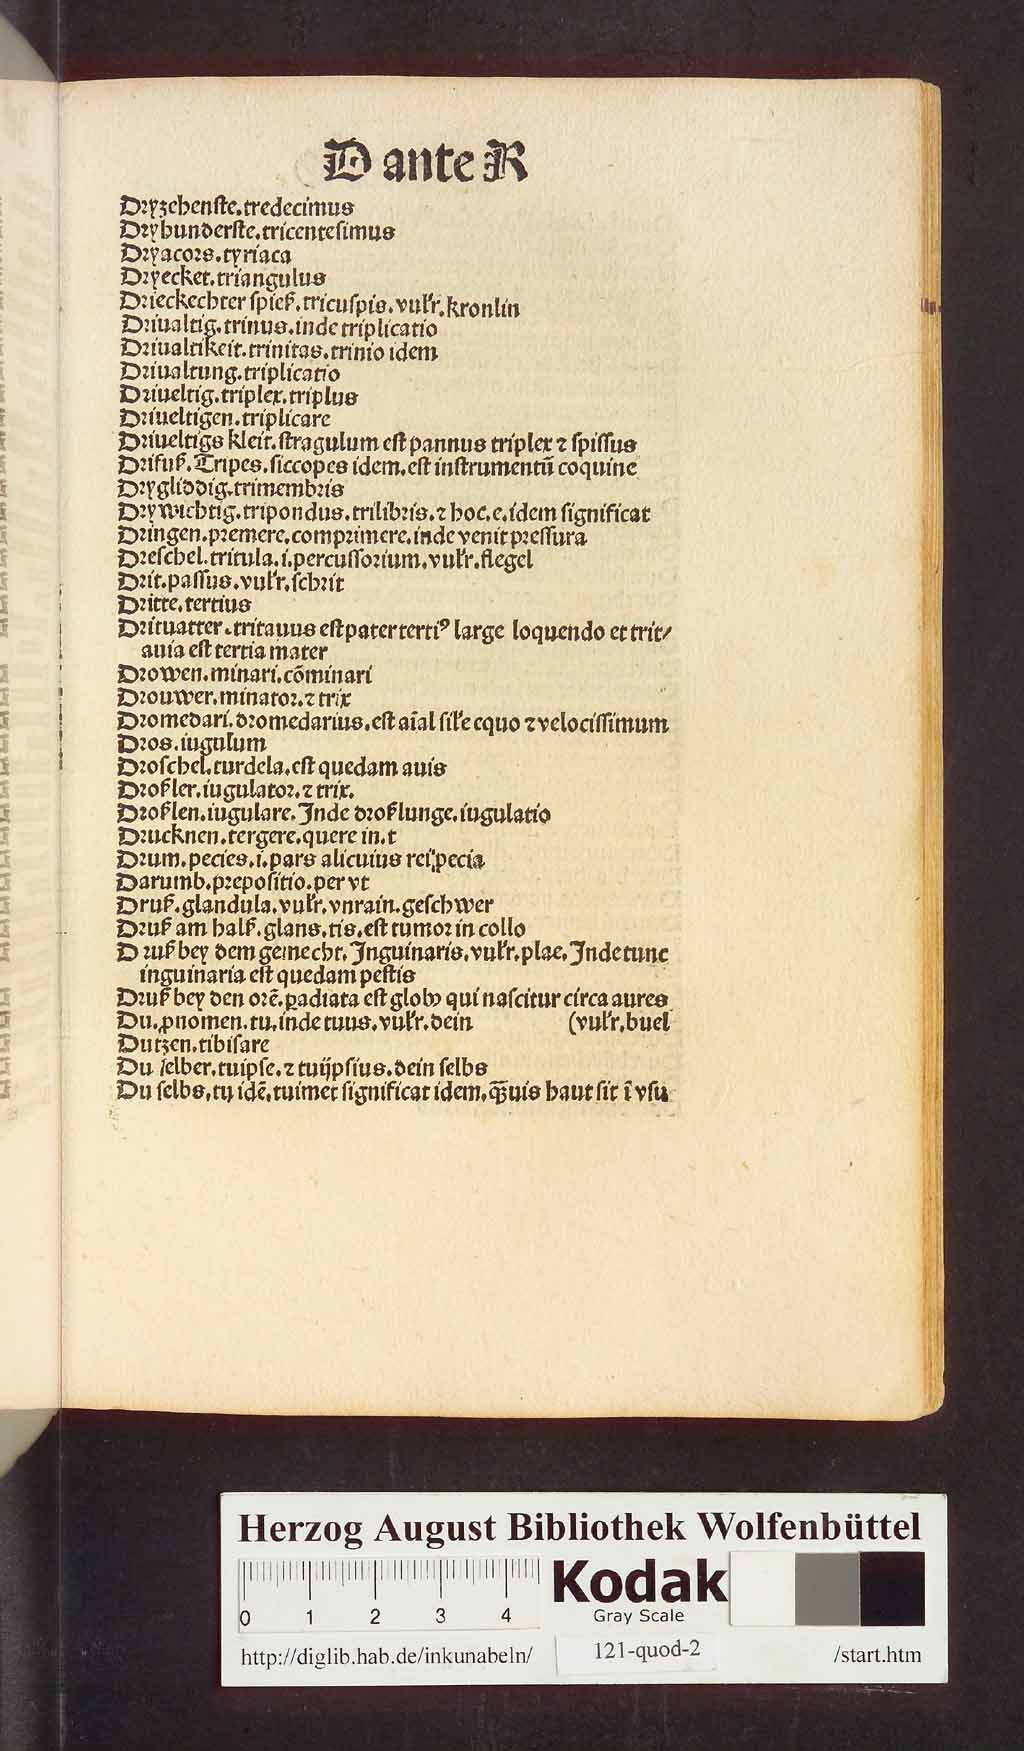 D ante R
Dryzehenste.tredecimus
Dryhunderste.tricentesimus
Dryacors.tyriaca
Dryecket.triangulus
Drieckechter spieß.tricuspis.vulʼr.kronlin
Driualtig.trinus.inde triplicatio
Driualtikeit.trinitas.trinio idem
Driualtung.triplicatio
Driueltig.triplex.triplus
Driueltigen.triplicare
Driueltigs kleit.stragulum est pannus triplex ⁊ spissus
Drifuß.Tripes.siccopes idem.est instrumentū coquine
Drygliddig.trimembris
Drywichtig.tripondus.trilibris.⁊ hoc.e.idem significat
Dringen.premere.comprimere.inde venit pressura
Dreschel.tritula.i.percussorium.vulʼr.flegel
Drit.passus.vulʼr.schrit
Dritte.tertius
Drituatter.tritauus est pater tertiꝰ large loquendo et trit/
auia est tertia mater
Drowen.minari.cōminari
Drouwer.minator.⁊ trix
Dromedari.dromedarius.est aīal silʼe equo ⁊ velocissimum
Dros.iugulum
Droschel.turdela.est quedam auis
Droßler.iugulator.⁊ trix.
Droßlen.iugulare.Inde droßlunge.iugulatio
Drucknen.tergere.quere in.t
Drum.pecies.i.pars alicuius rei.pecia
Darumb.prepositio.per vt
Druß.glandula.vulʼr.vnrain.geschwer
Druß am halß.glans.tis.est tumor in collo
D ruß bey dem gemecht.Inguinaris.vulʼr.plae.Inde tunc
inguinaria est quedam pestis
Druß bey den orē.ꝑadiata est globꝰ qui nascitur circa aures
Du.ꝓnomen.tu.inde tuus.vulʼr.dein (vulʼr.buel
Dutzen.tibisare
Du selber.tuipse.⁊ tuijpsius.dein selbs
Du selbs.tu idē.tuimet significat idem.qͣ̄uis haut sit ī vsu
Herzog August Bibliothek Wolfenbüttel
0 1 2 3 4
Kodak
Gray Scale
http://diglib.hab.de/inkunabeln/ 121-quod-2 /start.htm